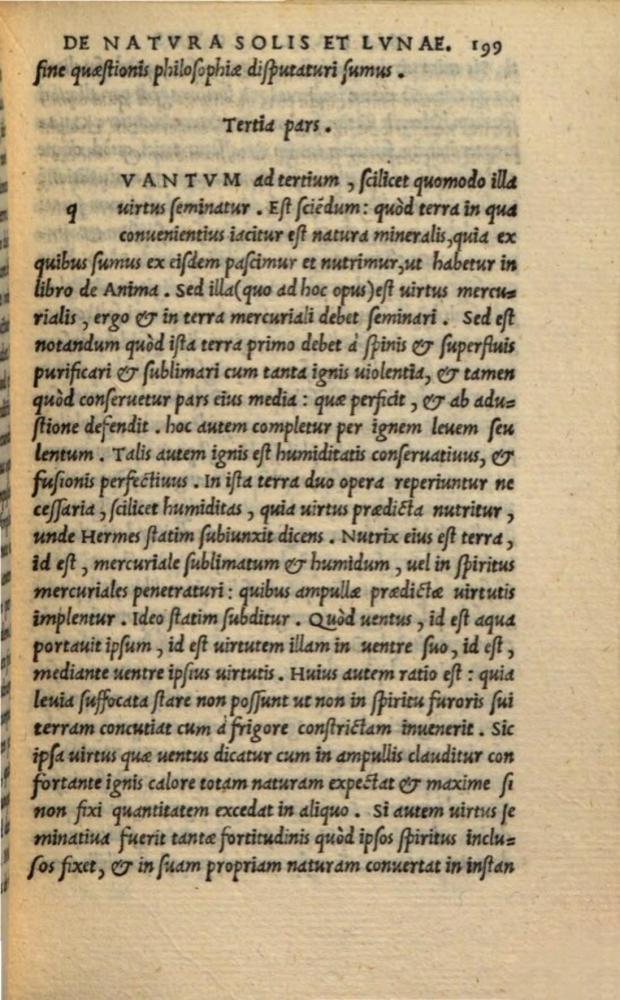 DE NATVRA SOLIS ET LVNAE. 199
fine quæſtionis philoſophiæ diſputaturi ſumus.
Tertia pars.
VANTVM ad tertium, ſcilicet quomodo illa
q uirtus ſeminatur. Eſt ſciẽdum: quòd terra in qua
conuenientius iacitur eſt natura mineralis, quia ex
quibus ſumus ex eiſdem paſcimur et nutrimur, ut habetur in
libro de Anima. Sed illa (quo ad hoc opus) eſt uirtus mercu=
rialis, ergo & in terra mercuriali debet ſeminari. Sed eſt
notandum quòd iſta terra primo debet à ſpinis & ſuperfluis
purificari & ſublimari cum tanta ignis uiolentia, & tamen
quòd conſeruetur pars eius media: quæ perficit, & ab adu=
ſtione defendit. hoc autem completur per ignem leuem ſeu
lentum. Talis autem ignis eſt humiditatis conſeruatiuus, &
fuſionis perfectiuus. In iſta terra duo opera reperiuntur ne
ceſſaria, ſcilicet humiditas, quia uirtus prædicta nutritur,
unde Hermes ſtatim ſubiunxit dicens. Nutrix eius eſt terra,
id eſt, mercuriale ſublimatum & humidum, uel in ſpiritus
mercuriales penetraturi: quibus ampullæ prædictæ uirtutis
implentur. Ideo ſtatim ſubditur. Quòd uentus, id eſt aqua
portauit ipſum, id eſt uirtutem illam in uentre ſuo, id eſt,
mediante uentre ipſius uirtutis. Huius autem ratio eſt: quia
leuia ſuffocata ſtare non poſſunt ut non in ſpiritu furoris ſui
terram concutiat cum à frigore conſtrictam inuenerit. Sic
ipſa uirtus quæ uentus dicatur cum in ampullis clauditur con
fortante ignis calore totam naturam expectat & maxime ſi
non fixi quantitatem excedat in aliquo. Si autem uirtus ſe
minatiua fuerit tantæ fortitudinis quòd ipſos ſpiritus inclu=
ſos fixet, & in ſuam propriam naturam conuertat in inſtan